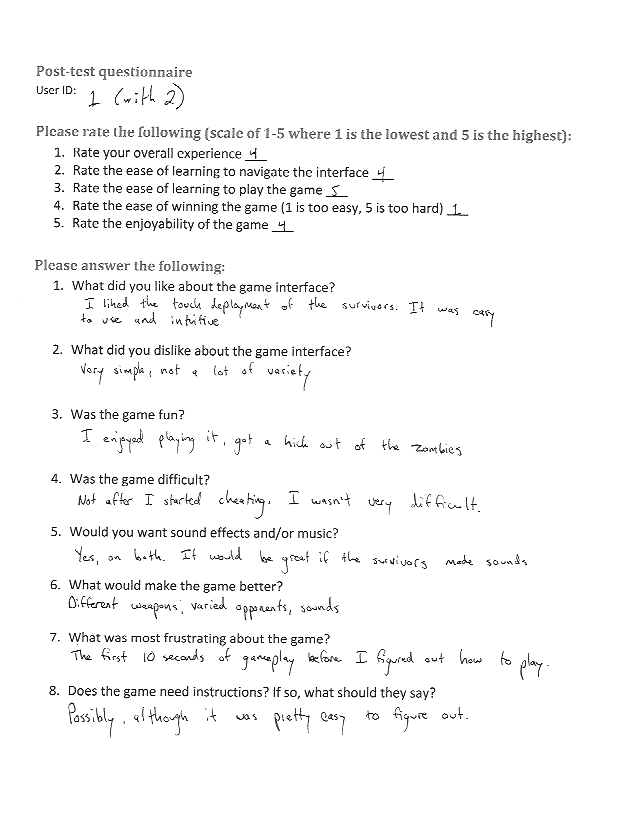 Post-test questionnaire
User ID: 1 (with 2)
Please rate the following (scale of 1-5 where 1 is the lowest and 5 is the highest):
1. Rate your overall experience 4
2. Rate the ease of learning to navigate the interface 4
3. Rate the ease of learning to play the game 5
4. Rate the ease of winning the game (1 is too easy, 5 is too hard) 1
5. Rate the enjoyability of the game 4
Please answer the following:
1. What did you like about the game interface?
I liked the touch deployment of the survivors. It was easy
to use and intuitive
2. What did you dislike about the game interface?
Very simple, not a lot of variety.
3. Was the game fun?
I enjoyed playing it, got a kick out of the zombies
4. Was the game difficult?
Not after I started cheating. I wasn't very difficult.
5. Would you want sound effects and/or music?
Yes, on both. It would be great if the survivors made sounds
6. What would make the game better?
Different weapons, varied opponents, sounds
7. What was most frustrating about the game?
The first 10 seconds of gameplay before I figured out how to play.
8. Does the game need instructions? If so, what should they say?
Possibly, although it was pretty easy to figure out.